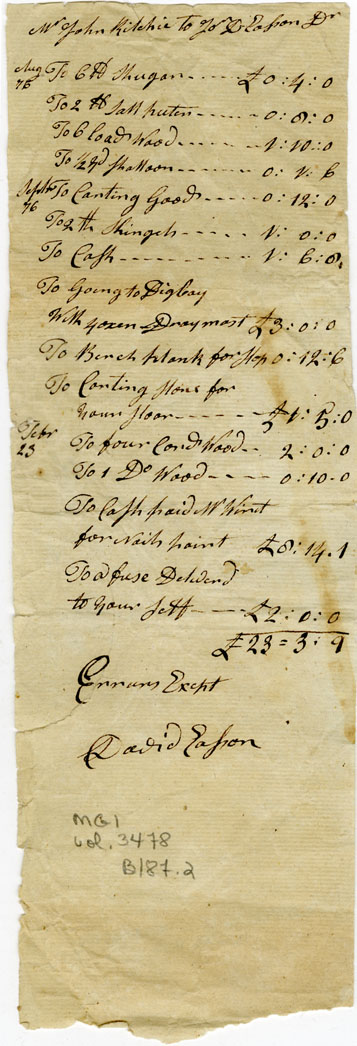 Mr John Ritchie to Jos D Easson Dr
Aug 76 To 6 lb Shugar - - - - - £ 0 : 4 : 0
To 2 lb Salt - - - - 0 : 8 : 0
To 6 load Wood - - - - 1 : 10 : 0
To ½ yd Shalloon - - - - 0 : 1 : 6
Septbr 76 To Carting Goods - - - - 0 : 12 : 0
To 2 th Shingels - - - 1 : 0 : 0
To Cash - - - - - - - - - 1 : 6 : 8
To Going to Digbay
With 4 oxen & Dray mast £3 : 0 : 0
To Bench plank for Shop 0 : 12 : 6
To Carting Stone for
your floor - - - - - £1 : 5 : 0
Febr 23 To four Cord Wood - - 2 : 0 : 0
To 1 Do Wood - - - - 0 : 10 - 0
To Cash paid Mr Winet
for Nails paint £8 : 14 . 1
To a fuse Deliverd
to your Self - - - - £2 : 0 : 0
£23 = 3 : 9
Errurs Except
David Easson
MG1
vol. 3478
B187.2